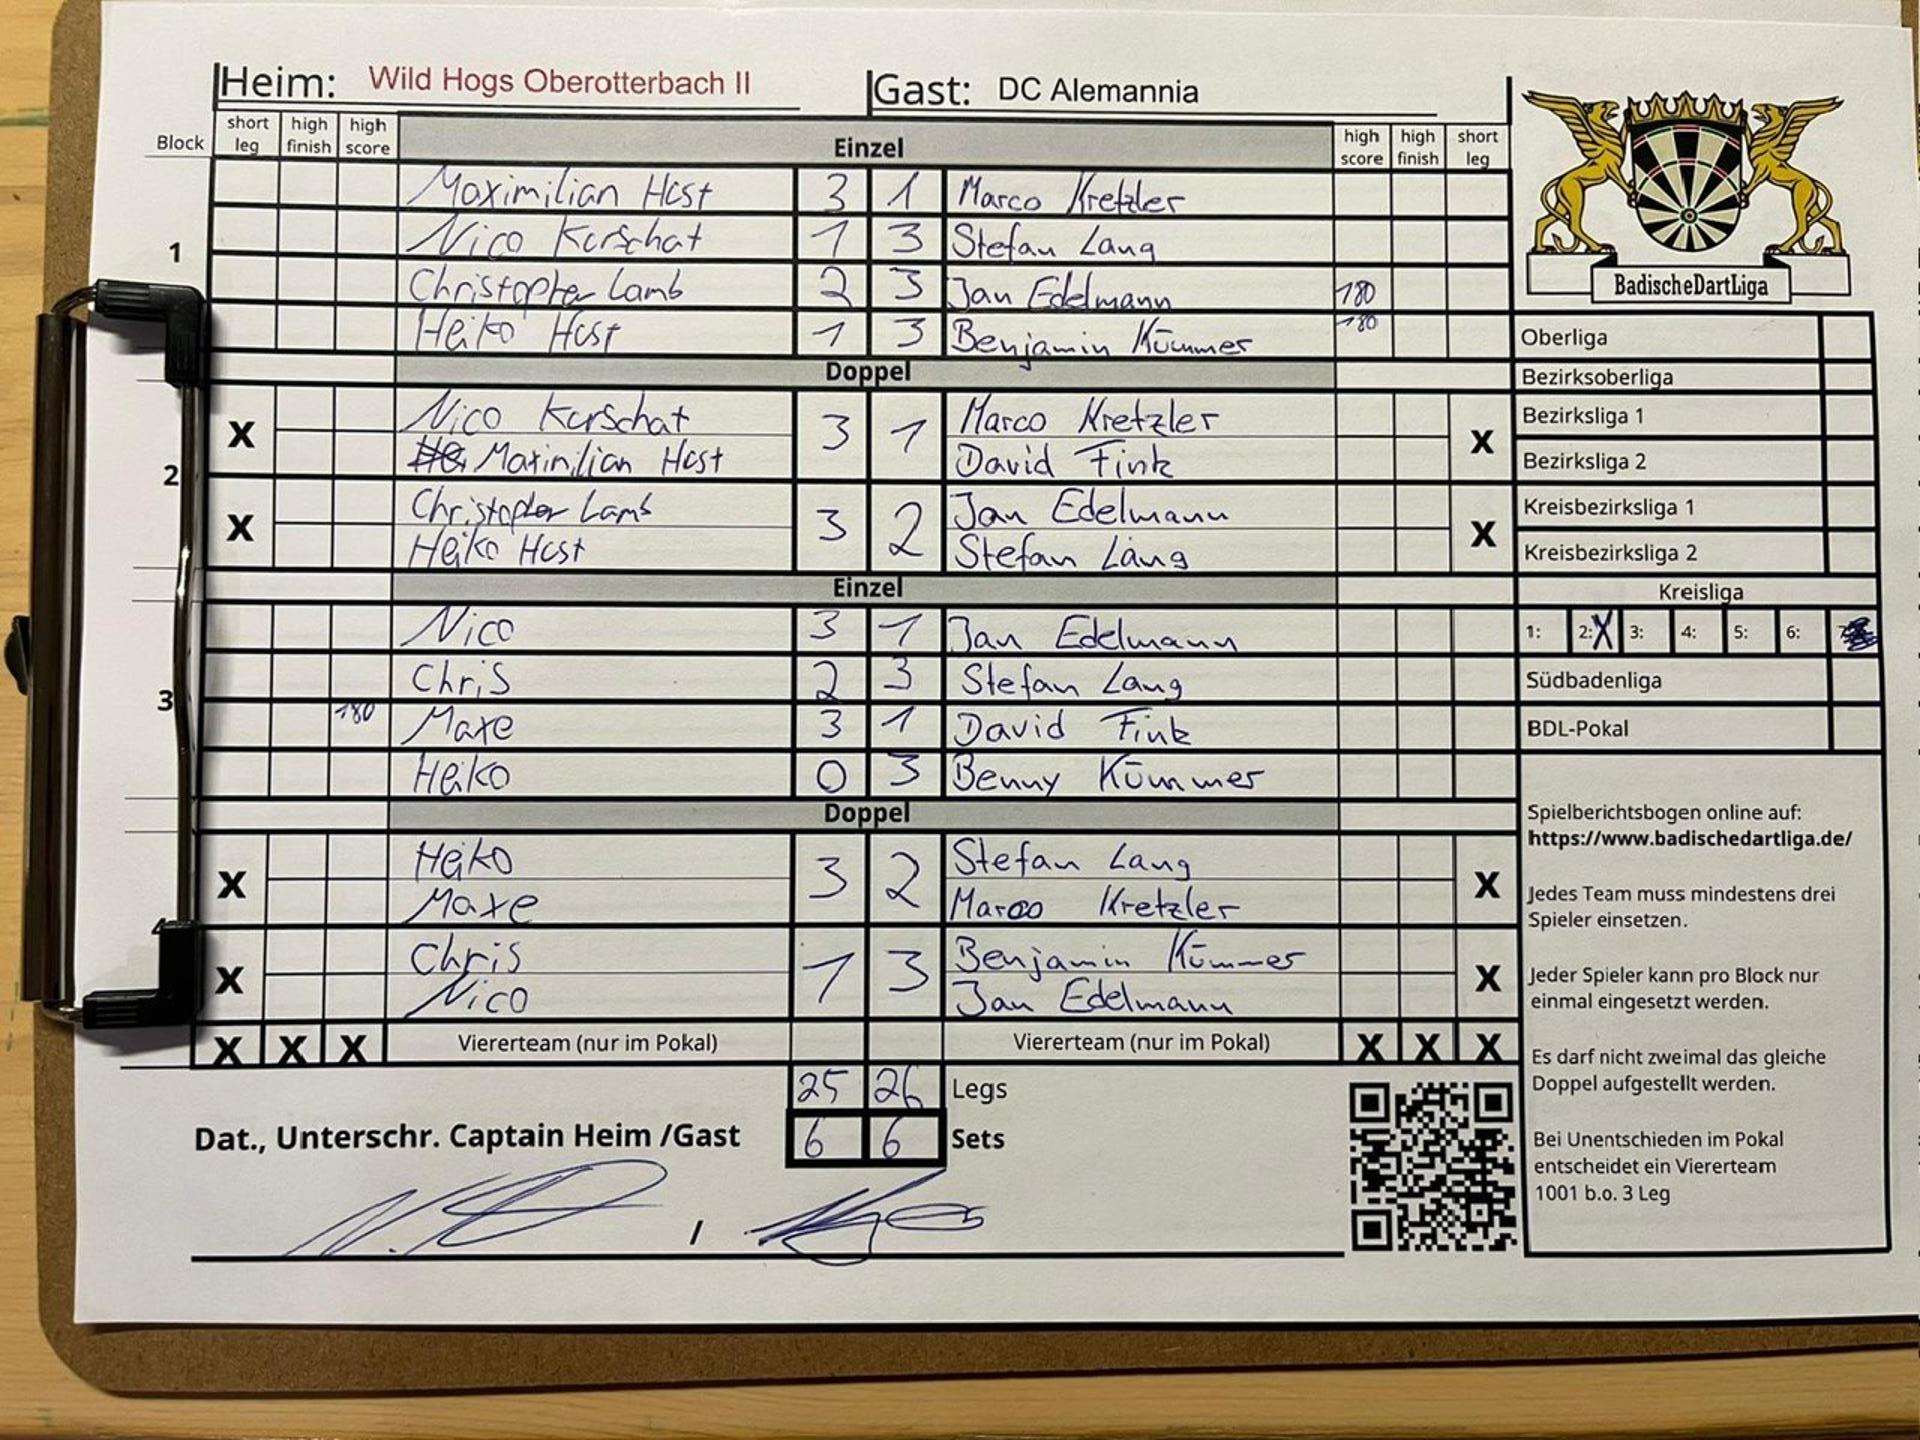 Heim: Wild Hogs Oberotterbach II Gast: DC Alemannia
Block short leg high finish high score Einzel high score high finish short leg
1
Maximilian Host 3 1 Marco Kretzler
Nico Kurschat 1 3 Stefan Lang
Christopher Lamb 2 3 Jan Edelmann 180
Heiko Host 1 3 Benjamin Kümmer 180
Doppel
2
X Nico Kurschat 3 1 Marco Kretzler X
Maximilian Host David Fink
X Christopher Lamb 3 2 Jan Edelmann X
Heiko Host Stefan Lang
Einzel
3
Nico 3 1 Jan Edelmann
Chris 2 3 Stefan Lang
180 Maxe 3 1 David Fink
Heiko 0 3 Benny Kümmer
Doppel
X Heiko 3 2 Stefan Lang X
Maxe Marco Kretzler
X Chris 1 3 Benjamin Kümmer X
Nico Jan Edelmann
X X X Viererteam (nur im Pokal) Viererteam (nur im Pokal) X X X
25 26 Legs
Dat., Unterschr. Captain Heim /Gast 6 6 Sets
/
BadischeDartLiga
Oberliga
Bezirksoberliga
Bezirksliga 1
Bezirksliga 2
Kreisbezirksliga 1
Kreisbezirksliga 2
Kreisliga
1: 2: X 3: 4: 5: 6:
Südbadenliga
BDL-Pokal
Spielberichtsbogen online auf:
https://www.badischedartliga.de/
Jedes Team muss mindestens drei
Spieler einsetzen.
Jeder Spieler kann pro Block nur
einmal eingesetzt werden.
Es darf nicht zweimal das gleiche
Doppel aufgestellt werden.
Bei Unentschieden im Pokal
entscheidet ein Viererteam
1001 b.o. 3 Leg